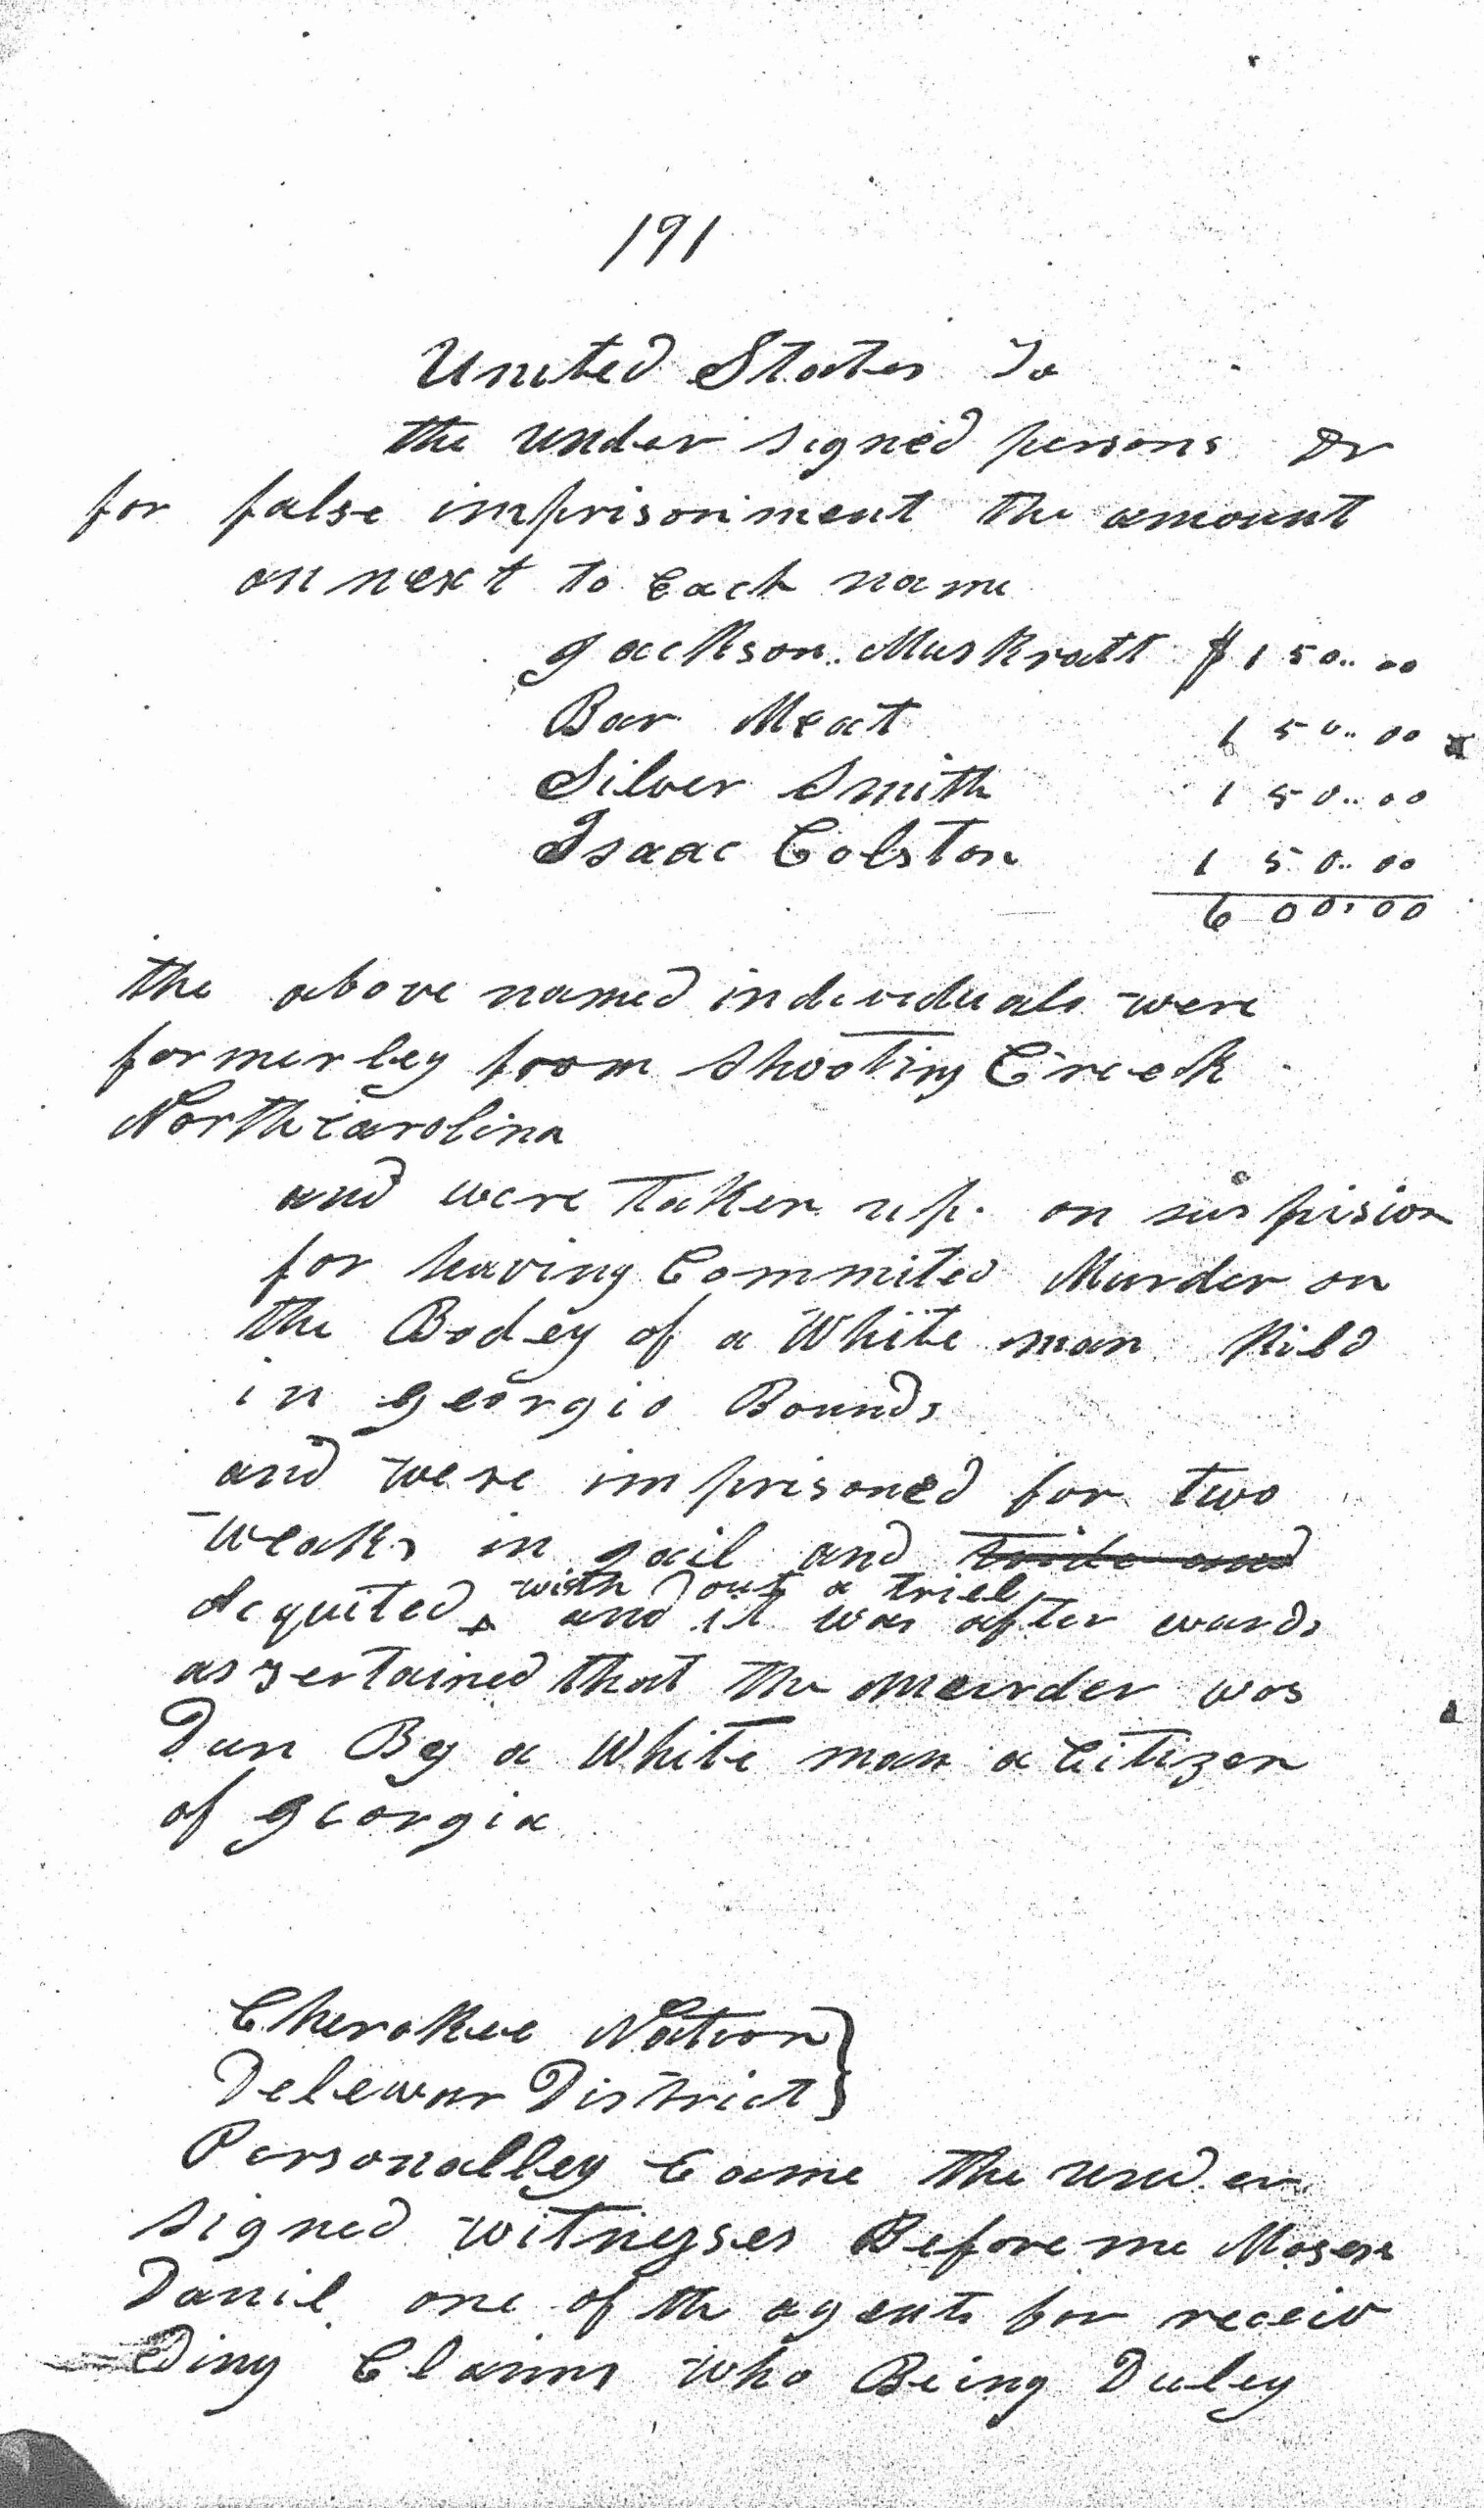 191
United States To
the under signed persons Dr
for false imprisonment the amount
annext to Each name
Jackson Muskratt $150.. 00
Bar Meat 150.. 00
Silver Smith 150.. 00
Isaac Colston 150.. 00
600.00
the above named individuals were
formerley from Shooting Creek
North carolina
and were Taken up. on suspision
for having Commited Murder on
the Bodey of a White man Kild
in georgia Bounds
and were imprisoned for two
weaks in gail and tride and
with out a triel
acquited and it was after wards
assertained that the meurder was
Dun By a White man a Citizen
of georgia
Cherokee Nation }
Delewar District }
Personalley Came the under
signed witnesses Before me Moses
Danil one of th agents for receiv
eding Claims who Being Duley